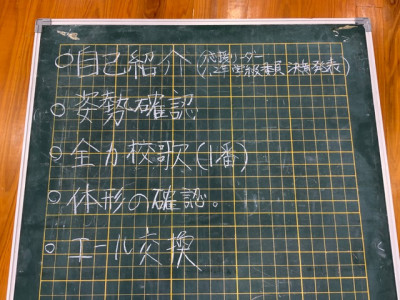 ○自己紹介（応援リーダー
1,2年学級委員 決意発表）
○姿勢確認
○全力校歌(1番)
○体形の確認。
○エール交換